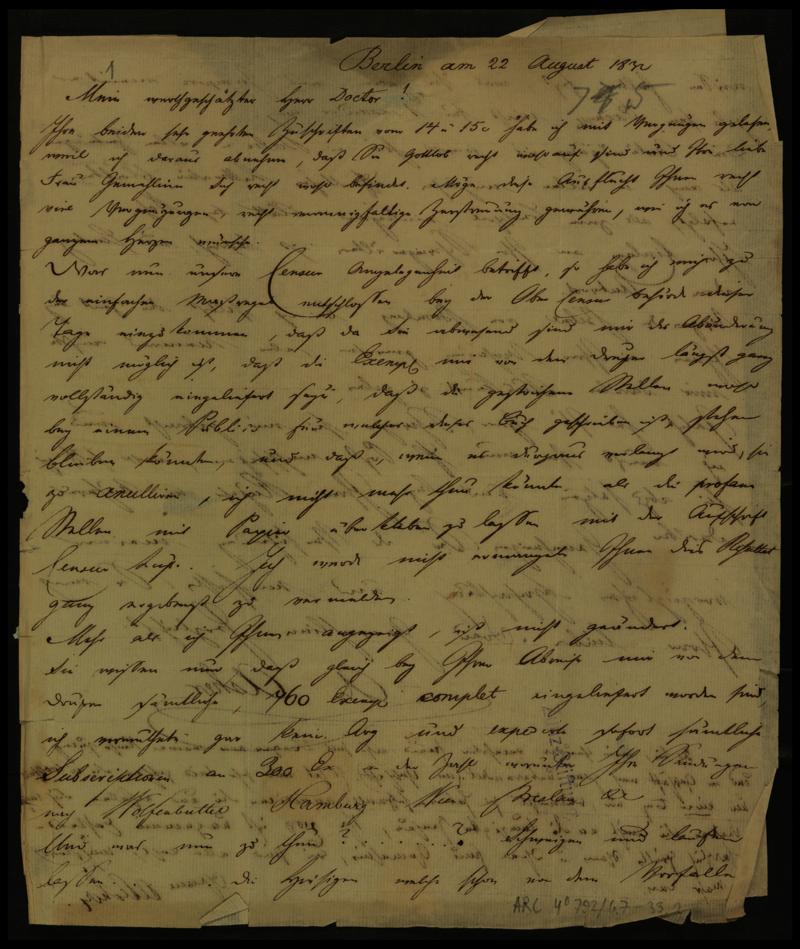 1
Berlin am 22 August 1832
Mein werthgeschätzter Herr Doctor!
Ihre beiden sehr geehrten Zuschriften vom 14 u 15c habe ich mit Vergnügen gelesen,
weil ich daraus abnehme, daß Sie Gottlob recht wohlauf sind und Ihre liebe
Frau Gemahlinn sich recht wohl befindet. Möge diese Ausflucht Ihnen recht
viele Vergnügungen, recht mannigfaltige Zerstreuung gewähren, wie ich es von
ganzem Herzen wünsche.
Was nun unsere Censur Angelegenheit betrifft, so habe ich mich zu
der einfachen Maßregel entschlossen bey der Ober Censur behörde dieser
Tage einzukommen, daß da Sie abwesend sind mir die Abänderung
nicht möglich ist, daß die Exempl mir von dem Drucker längst ganz
vollständig eingeliefert seyn, daß die gestrichenen Stellen wohl
bey einem Publicum für welches dieses Buch geschrieben ist, stehen
bleiben könnten, und daß, wenn es durchaus verlangt wird, sie
zu anulliren, ich nicht mehr thun könnte als die profanen
Stellen mit Papier überkleben zu lassen mit der Aufschrift
Censur Ich werde nicht ermangeln Ihnen das Resultat
ganz ergebenst zu vermelden.
Mehr als ich Ihnen angezeigt, ist nicht geändert.
Sie wissen nur daß gleich bey Ihrer Abreise mir von dem
Drucker sämtliche, 960 Exempl complet eingeliefert worden sind,
ich vermuthete gar kein Arg und expedirte sofort sämtliche
Subscribtionen an 300 Ex in der Zahl worunter Ihre Sendungen
nach Wolfenbüttel Hamburg Wien Breslau &c
Und was nun zu thun? ? Schweigen und laufen
lassen. die Hiesigen welche schon von dem Vorfalle
ARC 4° 792/